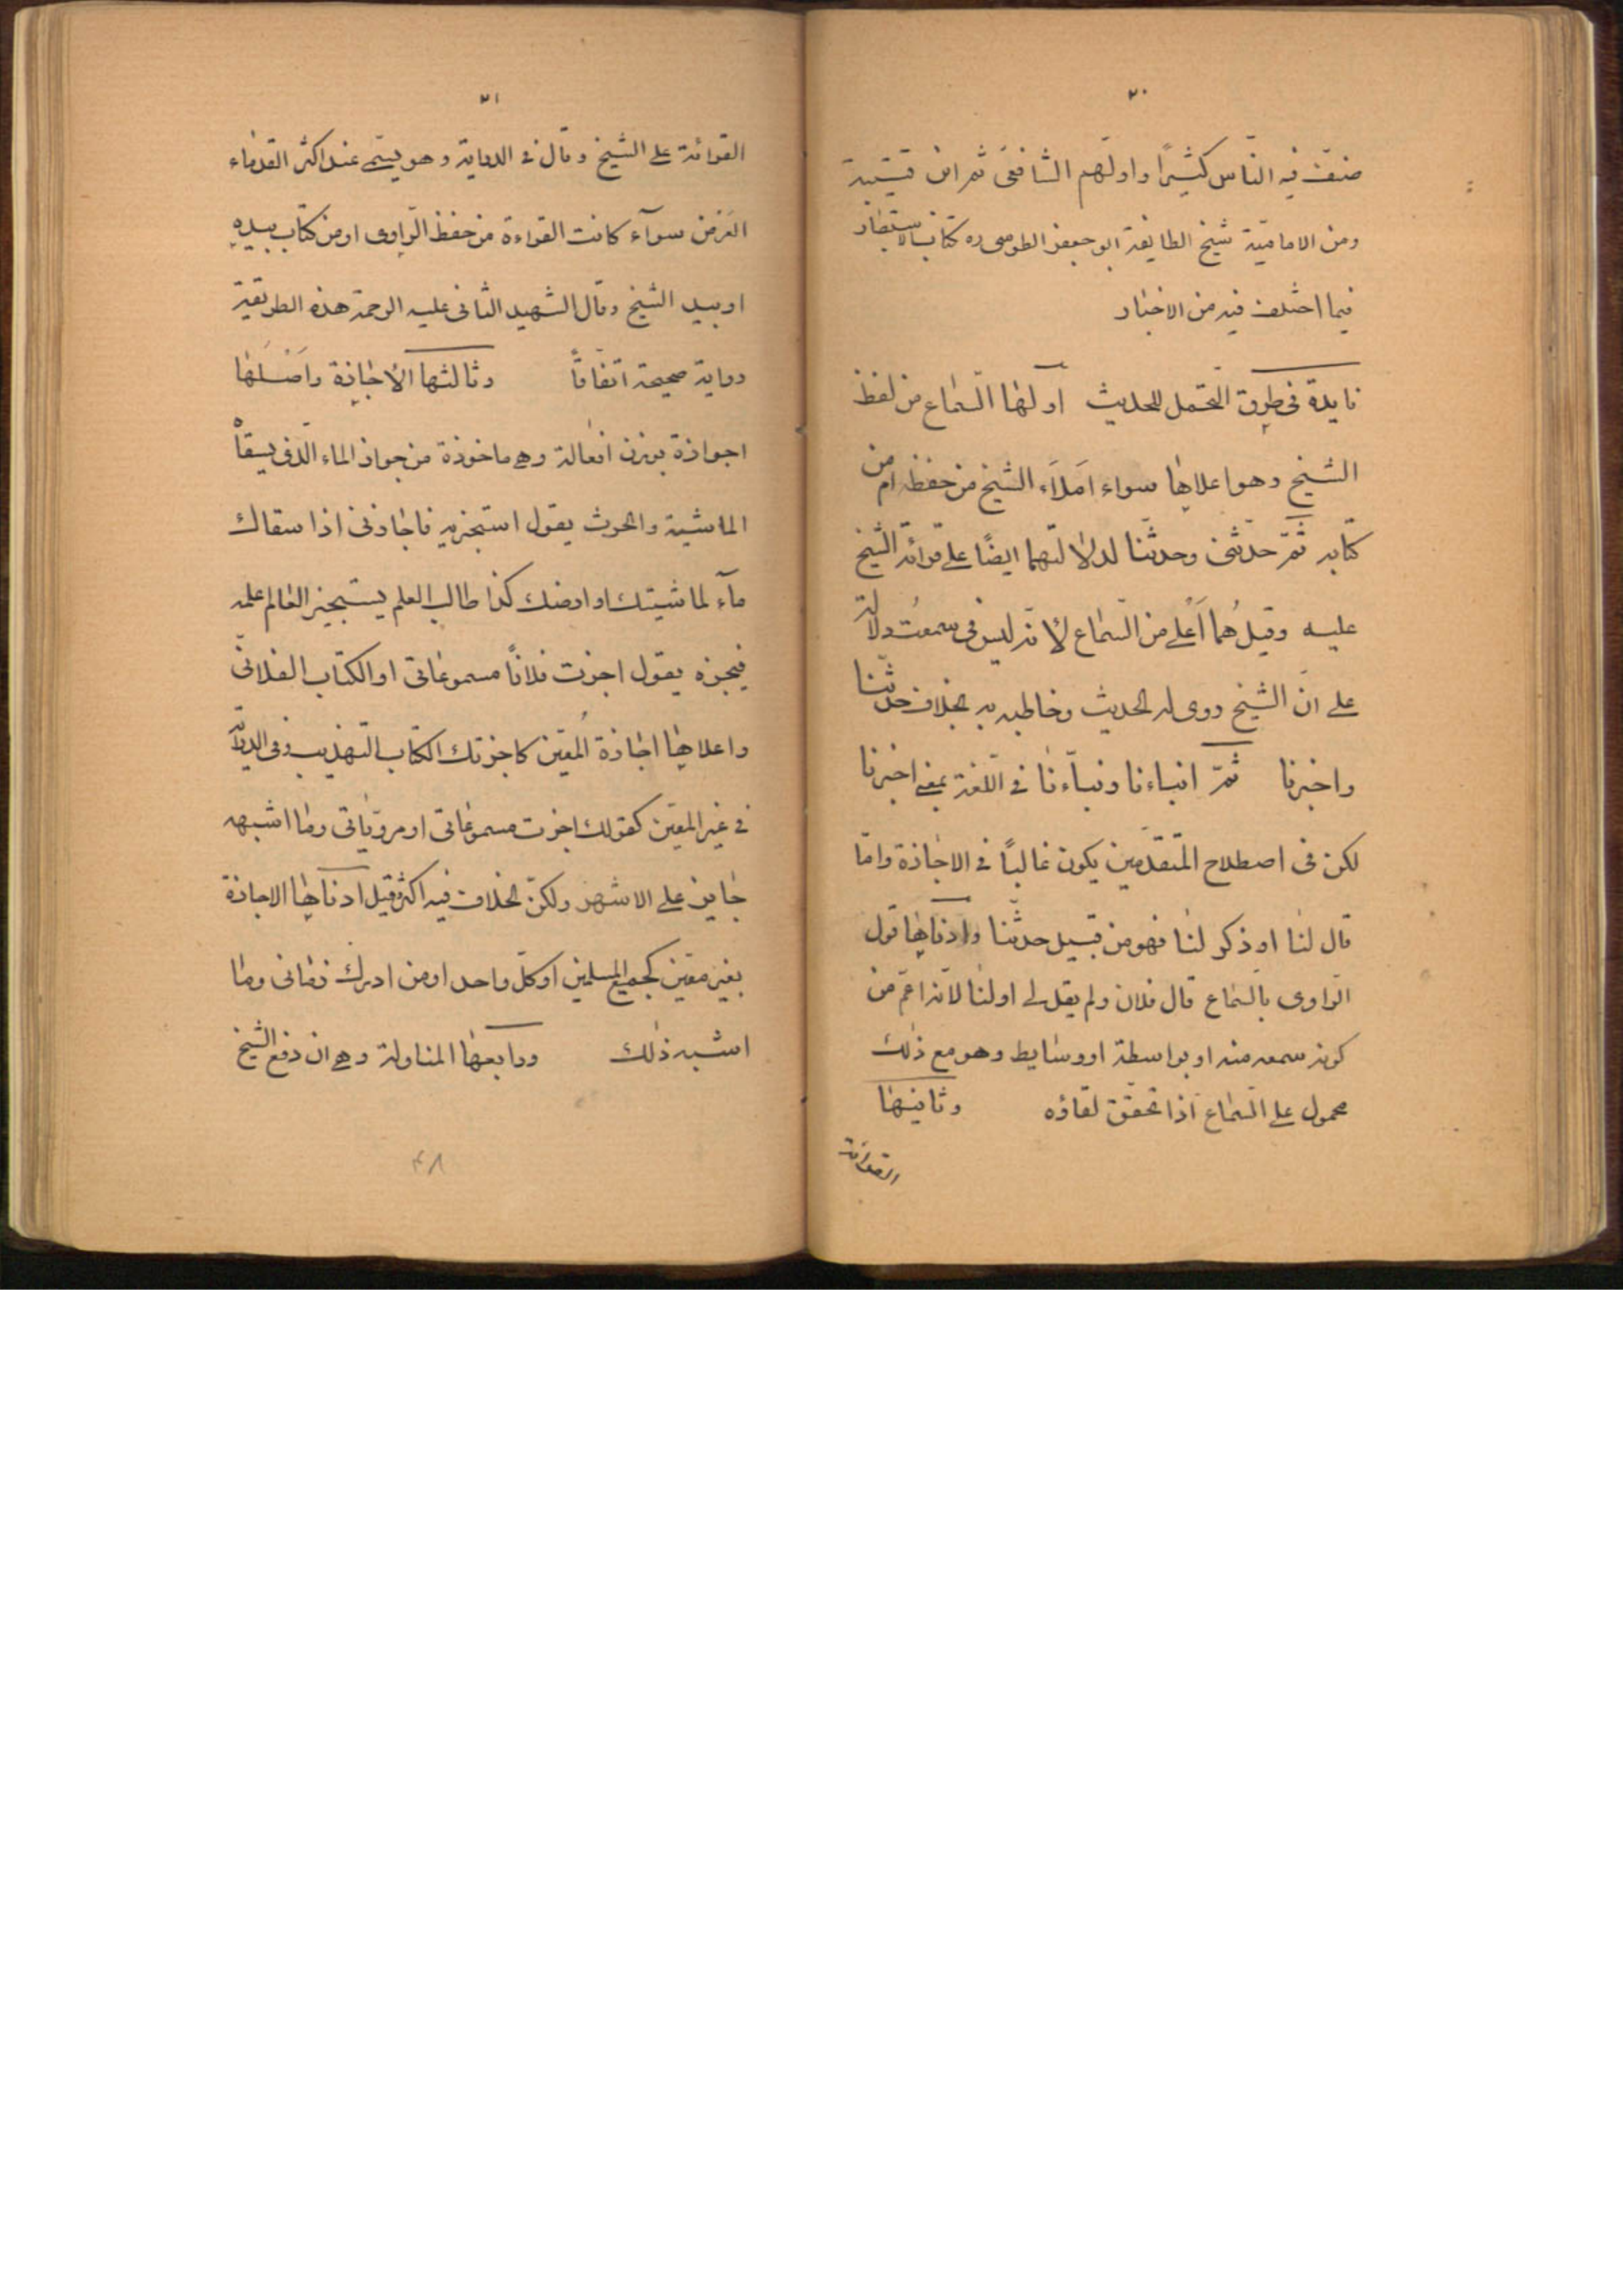 ٢٠
صنّف فيه النّاس كثيرًا واوّلهم الشافعى ثم ابن قتيبة
ومن الاماميّة شيخ الطايفة ابو جعفر الطوسى ره كتاب الاستبصار
فيما اختلف فيه من الاخبار
فايدة فى طرق التّحمّل للحديث اوّلها السّماع من لفظ
الشيخ وهو اعلاها سواء املاء الشيخ من حفظه ام من
كتابه ثمّ حدّثنى وحدّثنا لدلالتهما ايضًا على قرائة الشيخ
عليه وقيل هُما اَعلى من السّماع لأنّه ليس فى سمعت دلالة
على انّ الشيخ روى له الحديث وخاطبه به بخلاف حدّثنا
واخبرنا ثمّ انباءنا ونباّءنا فى اللّغة بمعنى اخبرنا
لكن فى اصطلاح المتقدّمين يكون غالبًا فى الاجازة وامّا
قال لنا او ذكر لنا فهو من قبيل حدّثنا وادناها قول
الرّاوى بالسّماع قال فلان ولم يقل لى اولنا لانّه اعمّ من
كونه سمعه منه او بواسطة او وسايط وهو مع ذلك
محمول على السّماع اذا تحقّق لقاؤه وثانيها
القرائة
٢١
القرائة على الشيخ وقال فى الدراية وهو يسمّى عند اكثر القدماء
العَرض سوآء كانت القراءة من حفظ الرّاوى او من كتاب بيده
او بيد الشيخ وقال الشهيد الثانى عليه الرحمة هذه الطريقية
رواية صحيحة اتّفاقًا وثالثها الاجازة واَصلها
اجوازة بوزن افعالة وهى ماخوذة من جواز الماء الّذى يسقاْ
الماشية والحرث يقول استجزته فاجازنى اذا سقاك
مآء لماشيتك او ارضك كذا طالب العلم يستجيز العالم علمه
فيجزه يقول اجزت فلانًا مسموعاتى او الكتاب الفلانىّ
واعلاها اجازة المُعيّن كاجزتك الكتاب التهذيب وفى الدراية
فى غير المعيّن كقولك اجزت مسموعاتى او مرويّاتى وما اشبهه
جايز على الاشهر ولكنّ الخلاف فيه اكثر وقيل ادناها الاجازة
بغير معيّن كجميع المسلمين او كلّ واحد او من ادرك زمانى وما
اشبه ذلك ورابعها المناولة وهى ان دفع الشيخ